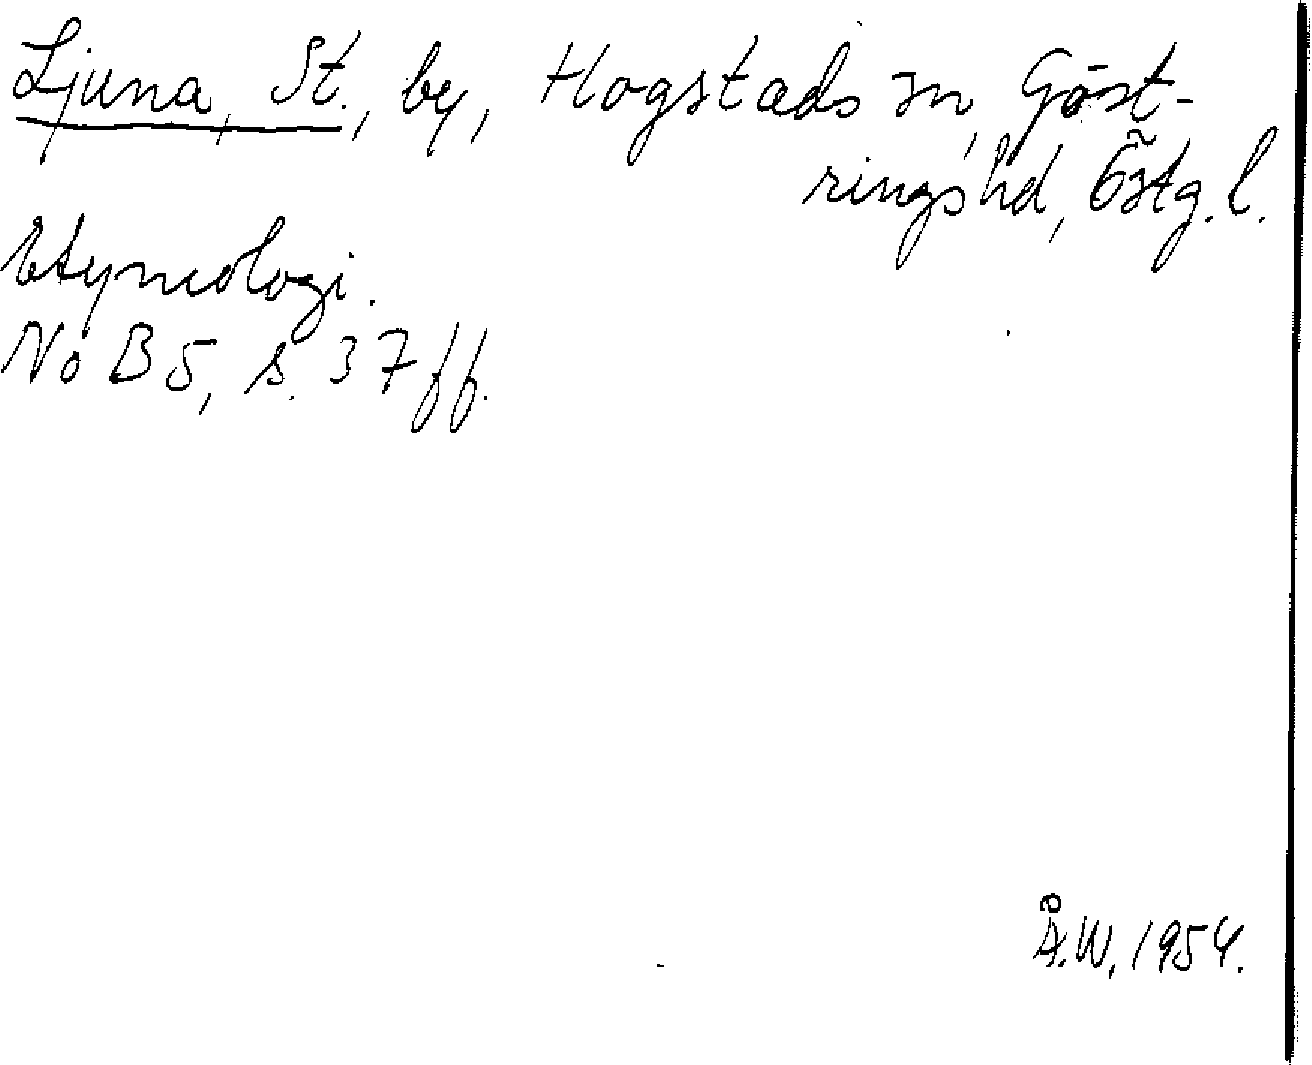 Ljuna, St., by, Hogstads sn, Göst-
rings hd, Östg. l.
Etymologi.
NoB 5, s. 37 ff.
Å.W. 1954.